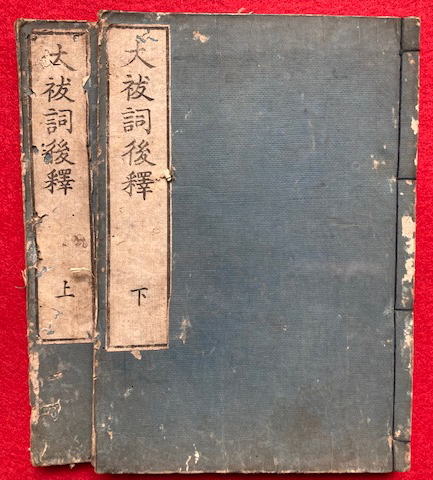 大祓詞後釋 上
大祓詞後釋 下